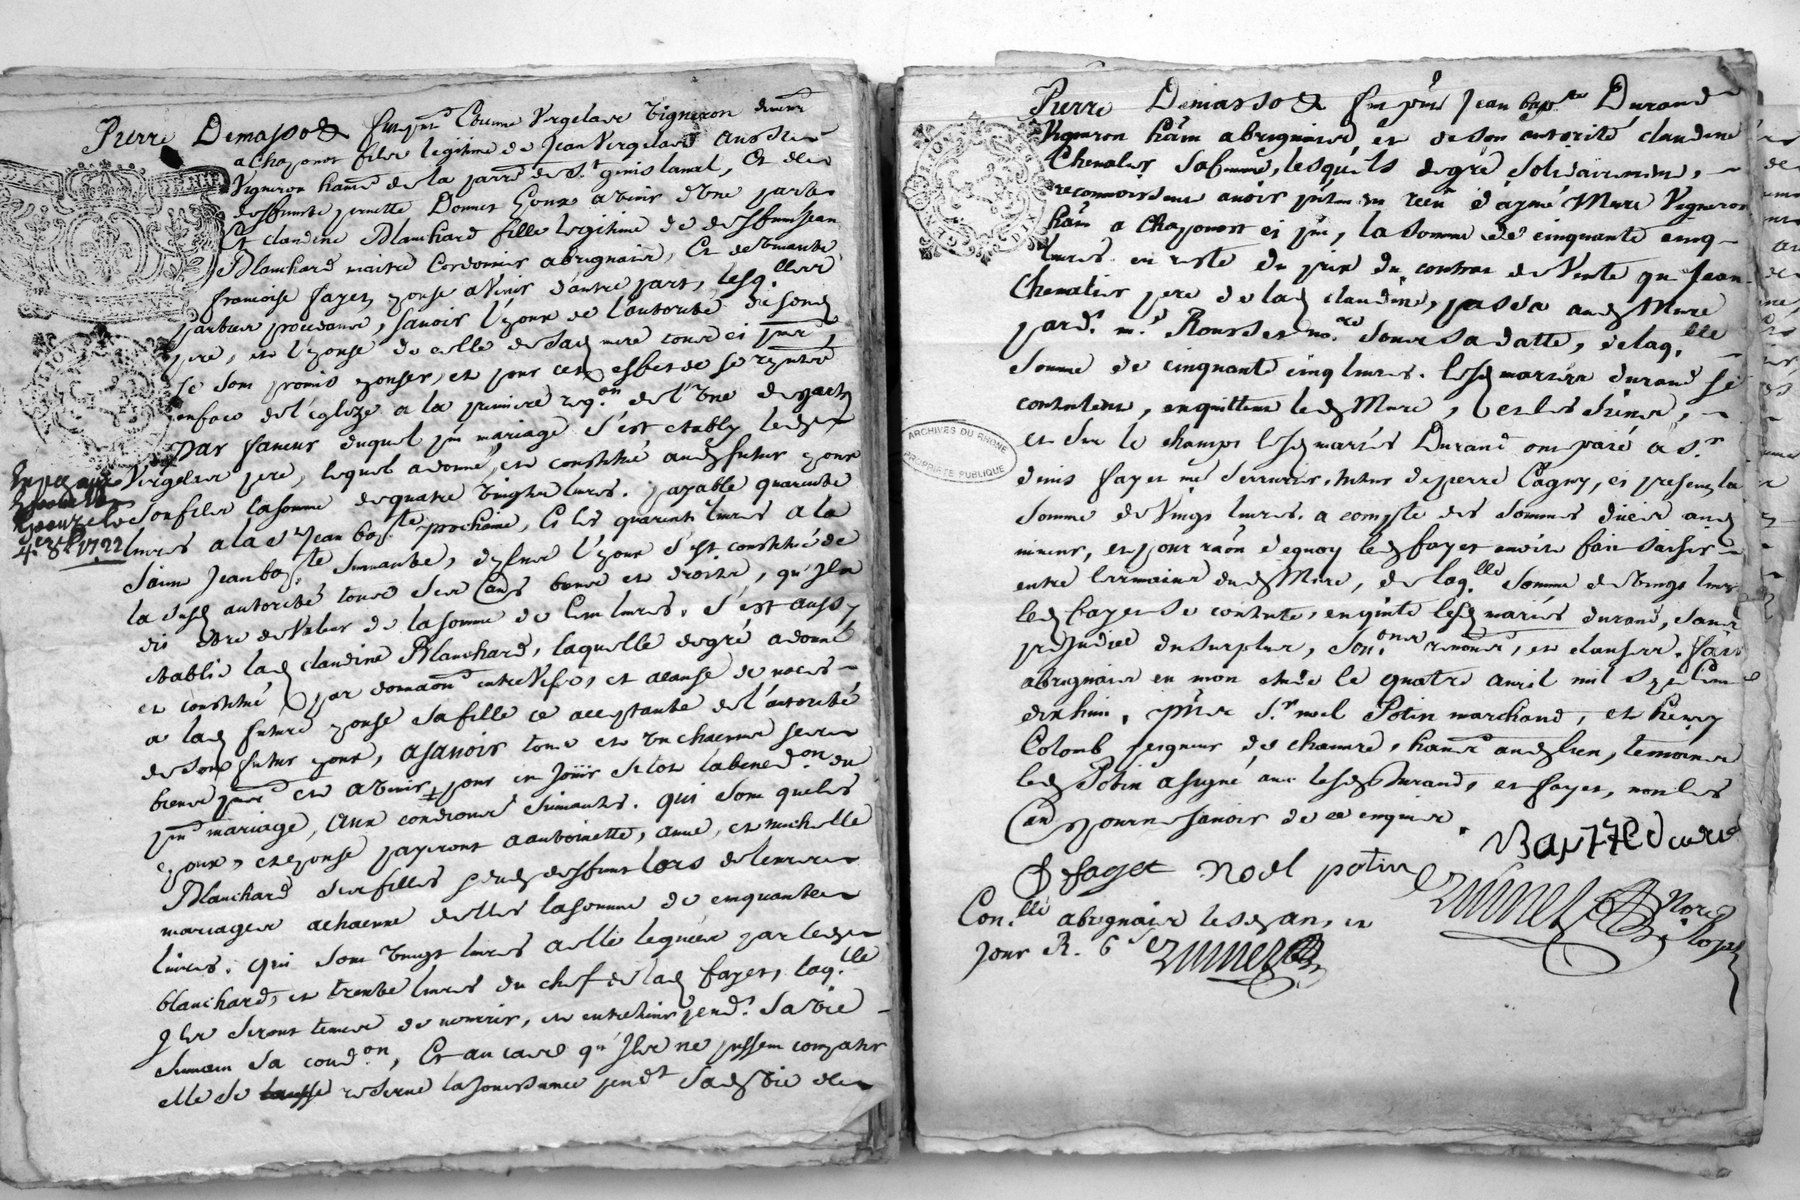 Pierre Demasso & fut pnt Etienne Vergelas vigneron demeur
a Chaponost fils legitime de Jean Vergelas Aussi
Vigneron hant de la parre de St genis laval, Et de
deffunte pernette Donnet Epoux avenir d'une part
Et claudine Blanchard fille legitime de deffunt Jean
Blanchard maitre Cordonnier a brignais, Et de vivante
francoise fayet epouse a venir d'autre part, lesq.lles
parties procedants, savoir l'epoux de l'autorité dud
pere, et l'epouse de celle de sad mere tous ci pnts,
se sont promis epouser, et pour cet effet de se rpnter
enface de l'eglize a la premiere req.on de l'une des parties
par faveur duquel pnt mariage s'est etably led
Vergelas pere, lequel a donné, et constitué aud futur epoux
son fils la somme de quatre vingts livres. payable quarante
livres a la St Jean bap.te prochaine, Et les quarante livres a la
Saint Jean bap.te suivante, deplus l'epoux s'est constitué de
la susd autorité tous ses Cans bons et droits, qu'Jl a
dit etre de valeur de la somme de Cent livres. s'est aussy
etablie lad claudine Blanchard, laquelle degré a donné
et constitué, par donnaon entrevifs, et a cause de noces
a lad future epouse sa fille ce acceptante de l'autorité
de son futur epoux, asavoir tous et un chacuns ses
biens pnts et avenir + pour en jouir sitot la bened.on du
pnt mariage, Aux conditions suivantes. qui sont que les
epoux, et epouse payeront a antoinette, anne, et michelle
Blanchard ses filles & dud deffunt lors de leurs
mariages a chacune d'elles la somme de cinquante
livres. qui sont vingt livres a elle leguées par led
blanchard, et trente livres du chef de lad fayet, laq.lle
Jls seront tenus de nourrir, et entretenir pend.t sa vie
suivant sa cond.on, Et au cas qu'Jls ne pussent compatir
elle se reserve la jouissance pend.t sad vie de
4. 8bre 1722
Pierre Demasso & fut pnt Jean bap.te Durand
Vigneron hant a brignais, et de son autorité claudine
Chevalier sa femme, lesquels degré solidairement,
reconnoissent avoir pnt reçu d'aymé Mure Vigneron
hant a Chaponost ci pnt, la somme de cinquante cinq
livres. en reste du prix du contrat de Vente que Jean
Chevalier pere de lad claudine, passa aud Mure
pard.t m.e Rousset no.re sous sa datte, delaq.lle
somme de cinquante cinq livres. lesd mariés durand se
contentent, en quittent led Mure, et les siens,
et sur le champs lesd mariés Durand ont payé a s.r
denis fayet me Serrurier, tuteur de pierre Cagny, ci present la
somme de Vingt livres. a compte des sommes dües aud
mineur, et pour raon dequoy led fayet auroit fait saisir
entre les mains dud Mure, de laq.lle somme de vingt livres
led fayet se contente, en quitte lesd mariés durand, sans
prejudice du surplus, son.ons renons, et clauses. fait
a brignais en mon etude le quatre avril mil sept cent
dix huit, pnts s.r noel Potin marchand, et henry
Colomb peigneur de chanvre, hants aud lieu, temoins
led Potin a signé avec lesd Durand, et fayet, non les
Cans pour ne savoir de ce enquis.
Baptte durand
D fayet noel potin
Con.llé a brignais lesd an, et
jour R. 6 s
ARCHIVES DU RHONE
PROPRIETE PUBLIQUE